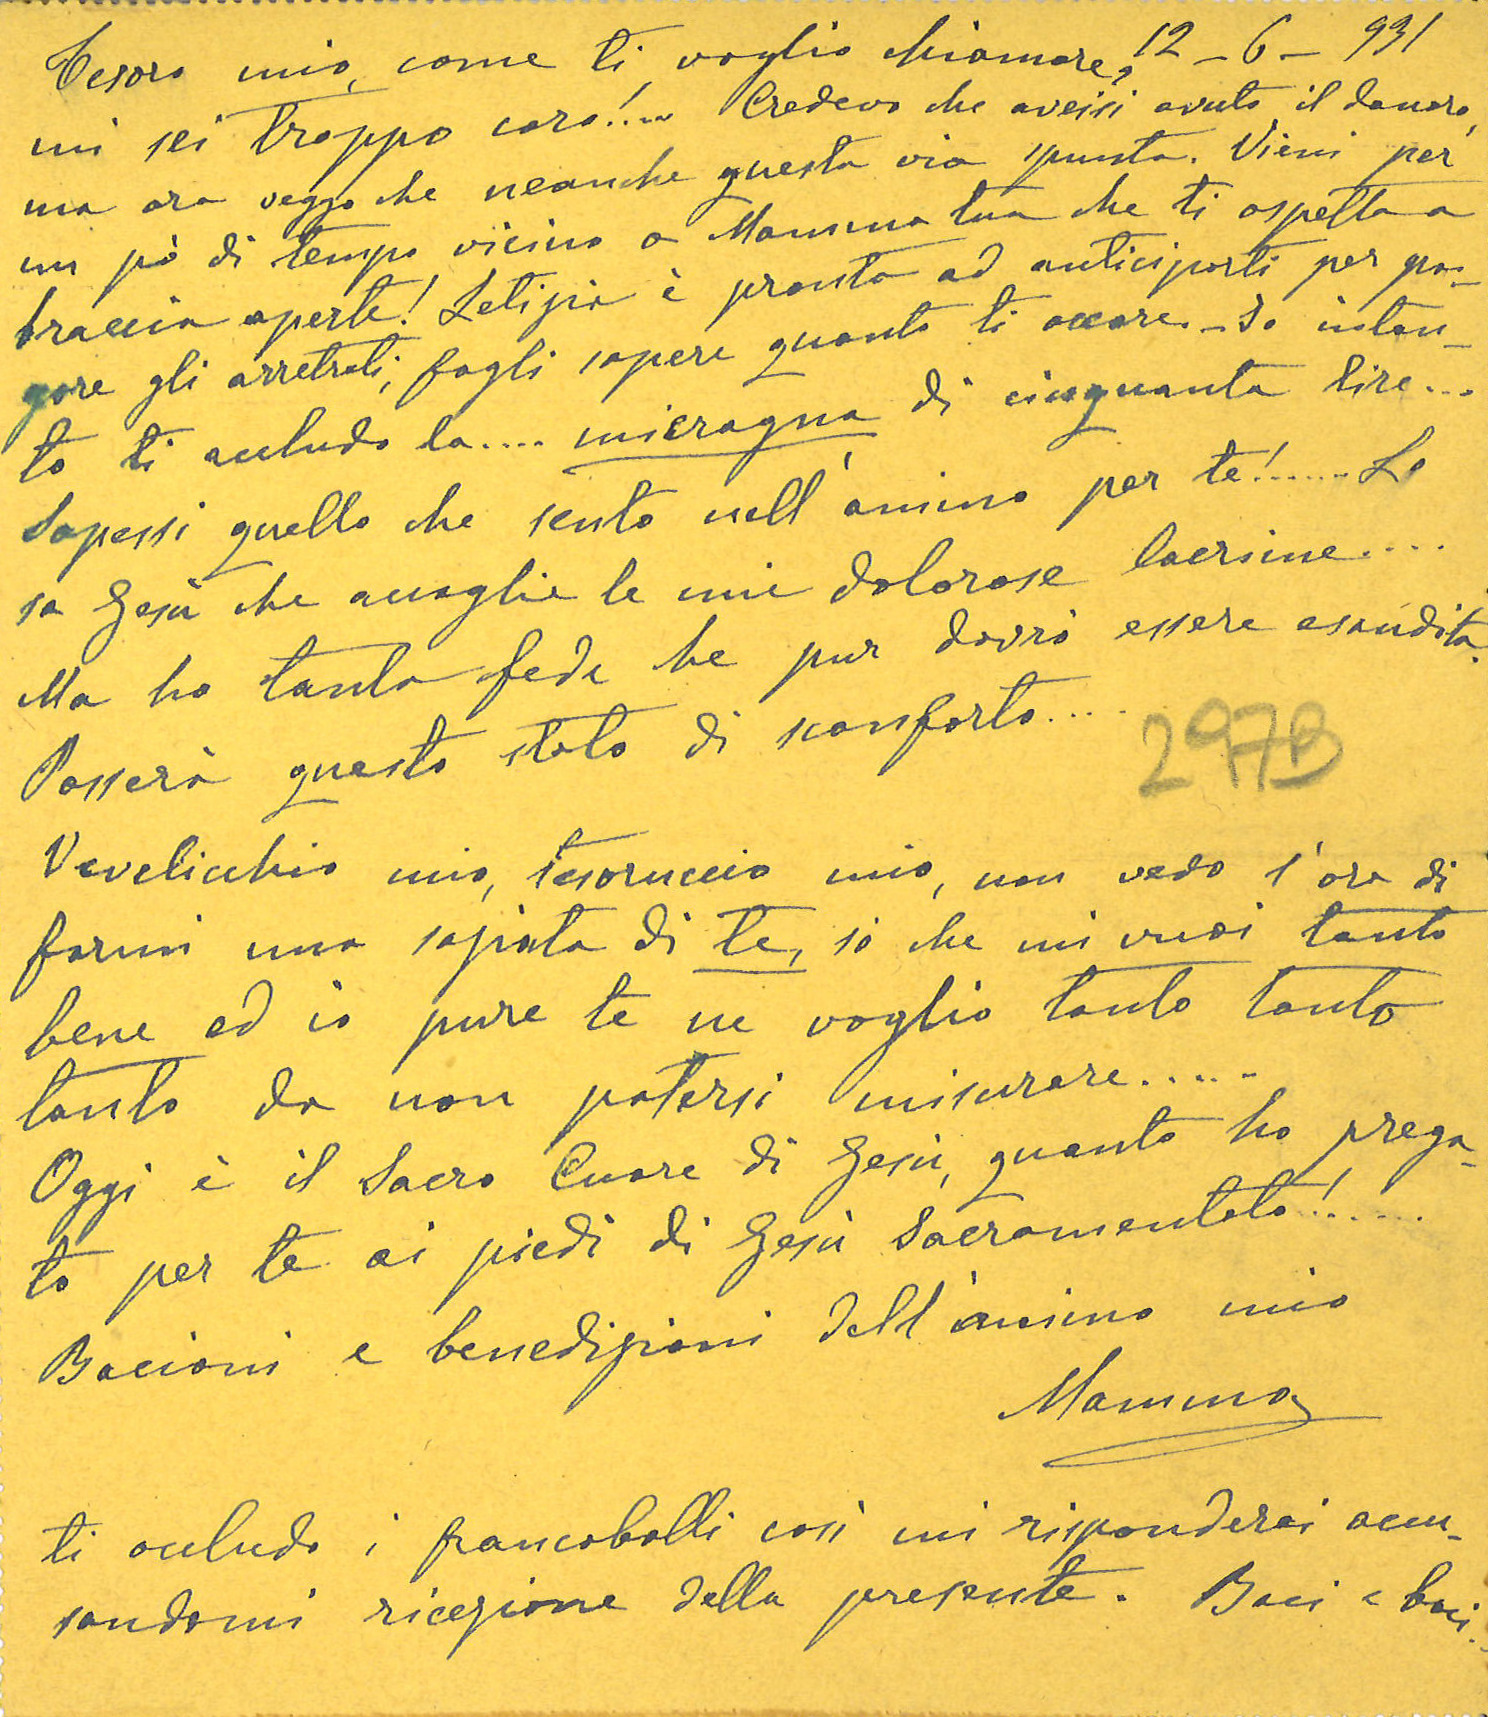 Tesoro mio, come ti voglio chiamare, 12 - 6 - 931
mi sei troppo caro!.... Credevo che avessi avuto il danaro,
ma ora veggo che neanche questa via spunta. Vieni per
un pò di tempo vicino a Mamma tua che ti aspetta a
braccia aperte! Letizia è pronta ad anticiparti per pa-
gare gli arretrati, fagli sapere quanto ti occore. - Io intan-
to ti accludo la.... micragna di cinquanta lire...
Sapessi quello che sento nell'animo per te!...... Lo
sa Gesù che accoglie le mie dolorose lacrime....
Ma ho tanta fede che pur dovrò essere esaudita.
Passerà questo stato di sconforto....
297B
Vevelicchio mio, tesoruccio mio, non vedo l'ora di
farmi una saziata di te, so che mi vuoi tanto
bene ed io pure te ne voglio tanto tanto
tanto da non potersi misurare.....
Oggi è il Sacro Cuore di Gesù, quanto ho prega-
to per te ai piedi di Gesù Sacramentato!......
Bacioni e benedizioni dell'animo mio
Mamma
ti accludo i francobolli così mi risponderai accu-
sandomi ricezione della presente. Baci e baci..